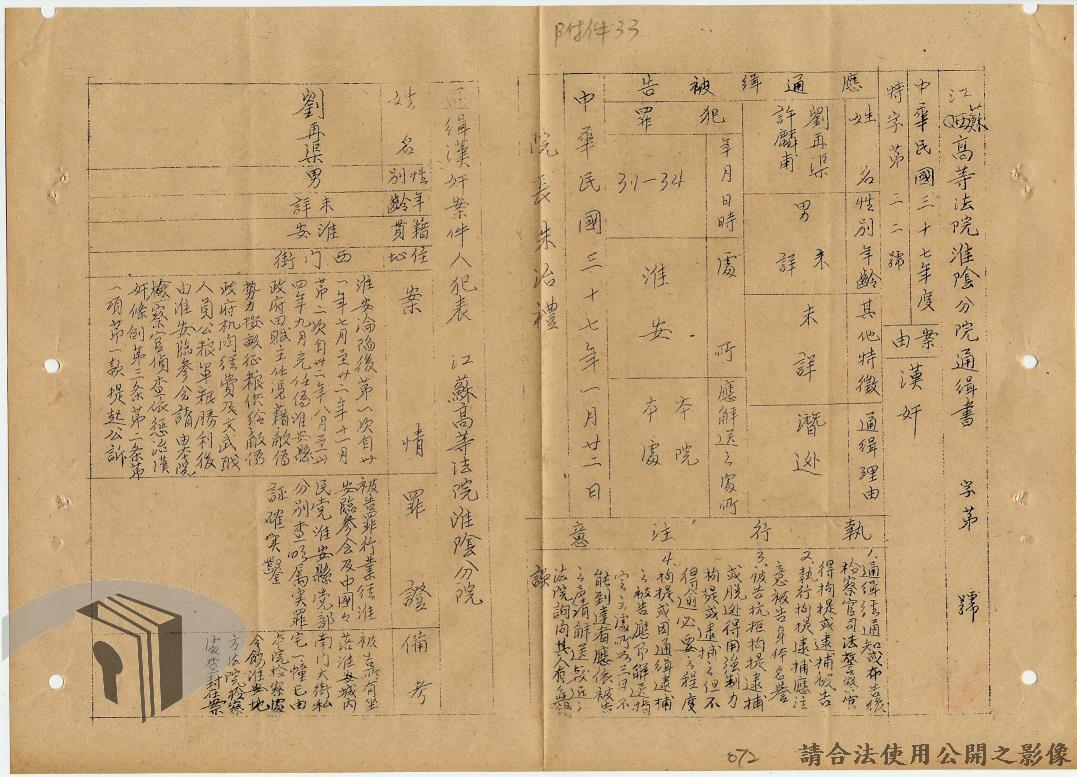 附件33
江蘇高等法院淮陰分院通緝書 字第 號
中華民國三十七年度
特字第二二號
案由
漢奸
應通緝被告
姓名
性別
年齡
其他特徵
通緝理由
劉再渠
許麟甫
男
未詳
未詳
潛逃
犯罪
年月日時
處所
應解送之處所
31-34
淮安
本院
本處
中華民國三十七年一月廿二日
院長朱治禮
執行注意
1.通緝經通知或布告後
檢察官司法警察官
得拘提或逮捕被告
2.執行拘提逮捕應注
意被告身体名譽
3.被告抗拒拘提逮捕
或脫逃得用強制力
拘提或逮捕之但不
得逾必要之程度
4.拘提或因通緝逮捕
之被告應即解送指
定之處所如三日不
能到達者應依被告
之聲請解送較近之
法院詢問其人有無錯
誤
通緝漢奸案件人犯表 江蘇高等法院淮陰分院
姓名
性別
年齡
籍貫
住地
案情
罪證
備考
劉再渠
男
未詳
淮安
西门街
淮安淪陷後第一次自卅
一年七月至卅二年十一月
第二次自卅三年八月至卅
四年九月充任偽淮安縣
政府田賦主任憑藉敵偽
勢力擅徵征粮供给敵偽
政府机関經費及文武職
人員公粮軍粮勝利後
由淮安臨參会請由本院
檢察官偵查依懲治漢
奸條例第二条第一
項第一款提起公訴
被告罪行業經淮
安臨參会及中國
民党淮安縣党部
分别查明屬実罪
証確実
被告所有坐
落淮安城内
南门大街私
宅一幢已由
本院检察處
令飭淮安地
方法院检察
處查封在案
072
請合法使用公開之影像